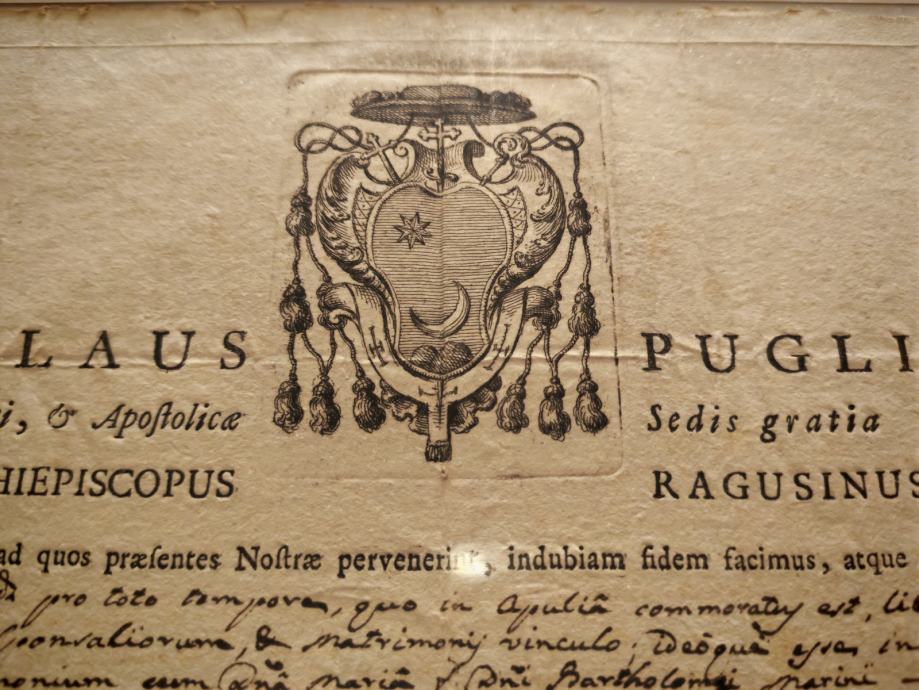 LAUS PUGLI
i, & Apoſtolicæ Sedis gratia
HIEPISCOPUS RAGUSINUS
ad quos præſentes Noſtræ pervenerint, indubiam fidem facimus, atque
pro toto tempore, quo in Apuliâ commoratus est, li
sponsaliorum, & Matrimonij vinculo; ideoquè esse in
monium cum Dnâ Mariâ Dñi Bartholomei Marini